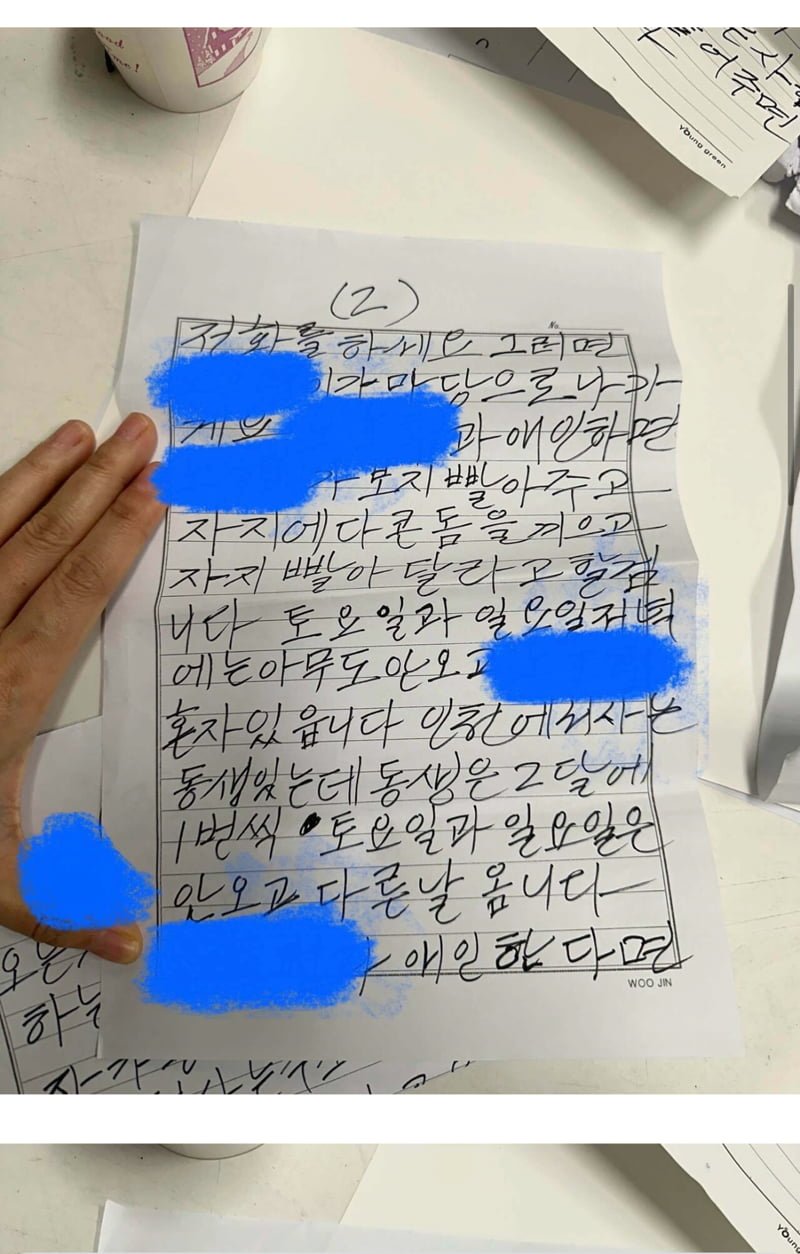 ood
me!
은사
들어주면
Young green
(2)
No.
전화를 하세요 그러면
이가 마당으로 나가
게요 과 애인하면
보지 빨아주고
자지에다 콘돔을 끼으고
자지 빨아 달라고 할겁
니다 토요일과 일요일저녁
에는 아무도 안오고
혼자 있읍니다 인천에서 사는
동생있는데 동생은 2달에
1번씩 토요일과 일요일은
안오고 다른날 옵니다
애인 한다면
WOO JIN
하는